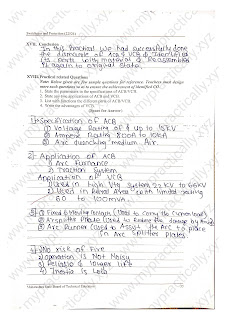 Switchgear and Protection (22524)
XVII. Conclusion
In this Practical we had successfully done
the dismantle of ACB & VCB & Identified
its parts with material & Reassemble
it again to original state.
XVIII. Practical related Questions
Note: Below given are few sample questions for reference. Teachers must design
more such questions so as to ensure the achievement of identified CO.
1. State the
2. State any two applications of ACB and VCB.
3. List
4. State
(Space for Answer)
1) Specification of ACB
1) Voltage Rating of g up to 15KV
2) Ampere Rating 800A to 10KA
3) Arc quenching medium Air
2) Application of ACB
1) Arc Furnance
2) Traction System
Application of VCB
1) Used in High Vtg System 22 KV to 66KV
2) Used in Rural Area with limited rating
60 to 100mva.
3) 1) Fixed & Moving Contact
2) Arc Splitter Plate Used to Reduce the damage by Arc
3) Arc Runner (Used to Assist the Arc to place
in Arc Splitter Plates.
4) 1) No risk of Fire
2) Operation is Not Noisy
3) Reliable & longer life
4) Inertia is Less
Maharashtra State Board of Technical Education